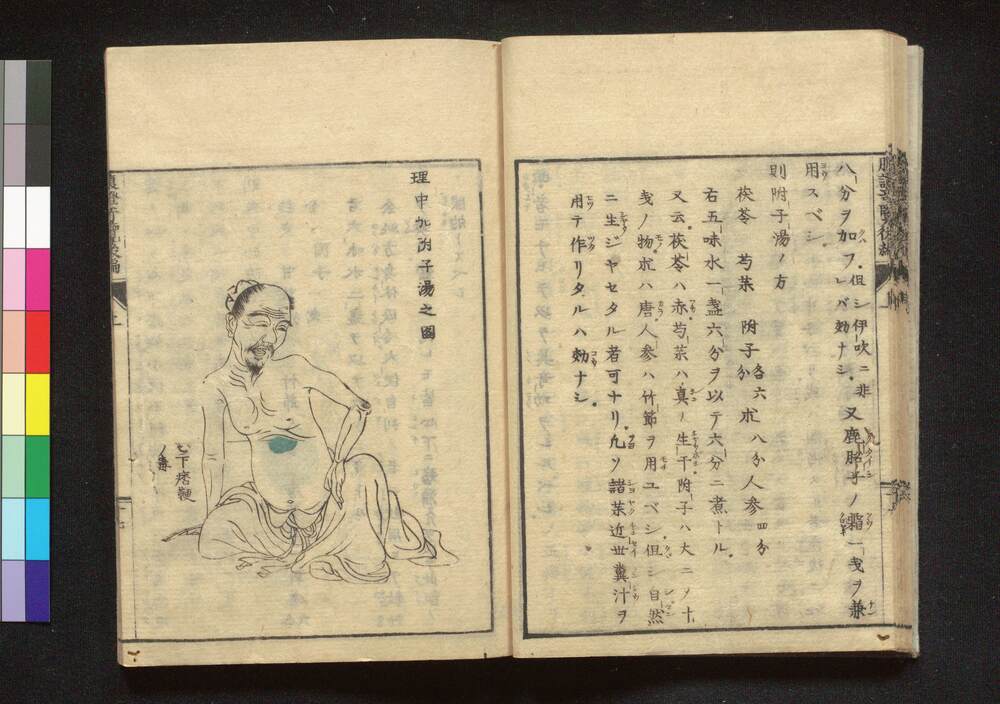 八分ヲ加フレバ効ナシ但シ伊吹ニ非又鹿胎子ノ霜一戔ヲ兼
用スベシ
則附子湯ノ方
茯苓 芍薬 附子各六分 朮八分 人参四分
右五味水一盞六分ヲ以テ六分ニ煮トル
又云茯苓ハ赤芍薬ハ真ノ生干附子ハ大ニノ十
戔ノ物朮ハ唐人参ハ竹節ヲ用ユベシ但シ自然
ニ生ジヤセタル者可ナリ凡ソ諸薬近世糞汁ヲ
用テ作リタルハ効ナシ
理中加附子湯之図
心下痞鞕
ノ毒